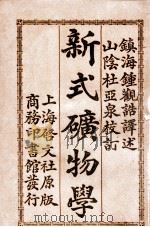 鎮海鍾觀誥譯述
山陰杜亞泉校訂
新式礦物學
上海啓文社原版
商務印書館發行